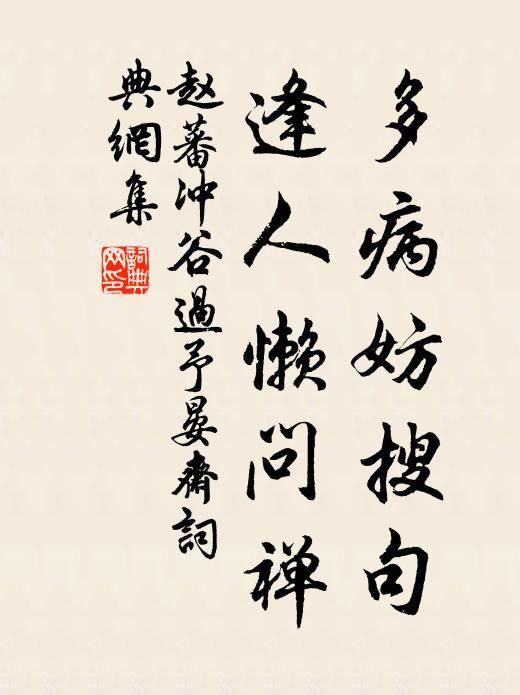 多病妨搜句
逢人懒问禅
赵蕃冲谷過予晏齋詞
典網集
詞典
网印